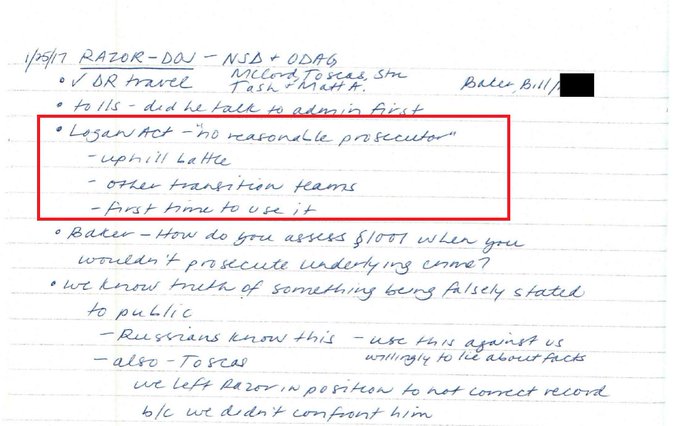 1/25/17 RAZOR-DOJ - NSD + ODAG
• √ DR travel McCord, Toscas, Stu Baker, Bill/
Tash + Matt A.
• tolls - did he talk to admin first
• Logan Act - "no reasonable prosecutor"
- uphill battle
- other transition teams
- first time to use it
• Baker - How do you assess §1001 when you
wouldn't prosecute underlying crime?
• we know truth of something being falsely stated
to public
- Russians know this - use this against us
- also - Toscas willingly to lie about facts
we left Razor in position to not correct record
b/c we didn't confront him